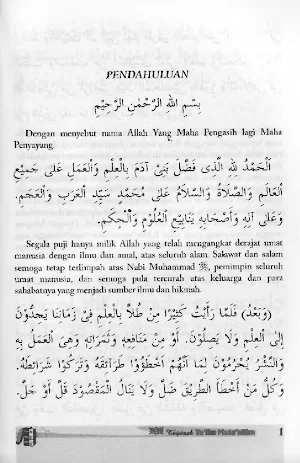 PENDAHULUAN
بِسْمِ اللهِ الرَّحْمٰنِ الرَّحِيْمِ
Dengan menyebut nama Allah Yang Maha Pengasih lagi Maha
Penyayang.
اَلْحَمْدُ لِلّٰهِ الَّذِى فَضَّلَ بَنِىْ آدَمَ بِالْعِلْمِ وَالْعَمَلِ عَلَى جَمِيْعِ
الْعَالَمِ وَالصَّلَاةُ وَالسَّلَامُ عَلَى مُحَمَّدٍ سَيِّدِ الْعَرَبِ وَالْعَجَمِ.
وَعَلَى آلِهِ وَأَصْحَابِهِ يَنَابِيْعِ الْعُلُوْمِ وَالْحِكَمِ.
Segala puji hanya milik Allah yang telah mengangkat derajat umat
manusia dengan ilmu dan amal, atas seluruh alam. Salawat dan salam
semoga tetap terlimpah atas Nabi Muhammad ﷺ, pemimpin seluruh
umat manusia, dan semoga pula tercurah atas keluarga dan para
sahabatnya yang menjadi sumber ilmu dan hikmah.
(وَبَعْدُ) فَلَمَّا رَأَيْتُ كَثِيْرًا مِنْ طُلَّابِ الْعِلْمِ فِىْ زَمَانِنَا يَجِدُّوْنَ
إِلَى الْعِلْمِ وَلَا يَصِلُوْنَ. أَوْ مِنْ مَنَافِعِهِ وَثَمَرَاتِهِ وَهِىَ الْعَمَلُ بِهِ
وَالنَّشْرُ يُحْرَمُوْنَ لِمَا أَنَّهُمْ أَخْطَؤُوْا طَرَائِقَهُ وَتَرَكُوْا شَرَائِطَهُ.
وَكُلُّ مَنْ أَخْطَأَ الطَّرِيْقَ ضَلَّ وَلَا يَنَالُ الْمَقْصُوْدَ قَلَّ أَوْ جَلَّ.
Terjemah Ta'lim Muta'allim
1